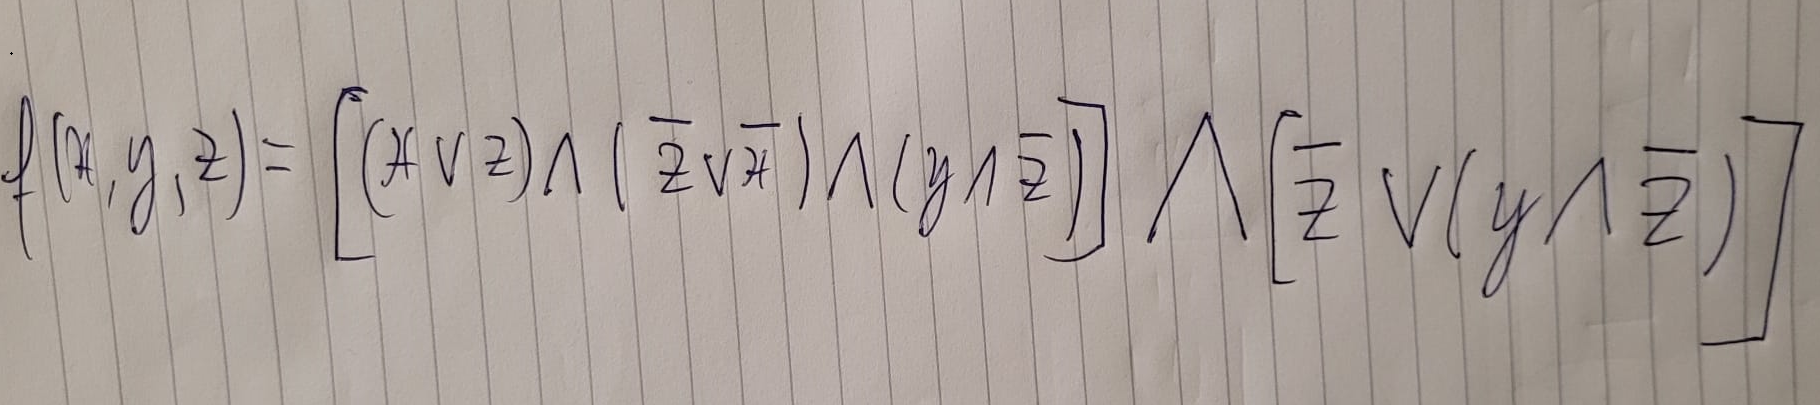 f(x,y,z)=[(x∨z)∧(z̅∨x̅)∧(y∧z̅)]∧[z̅∨(y∧z̅)]